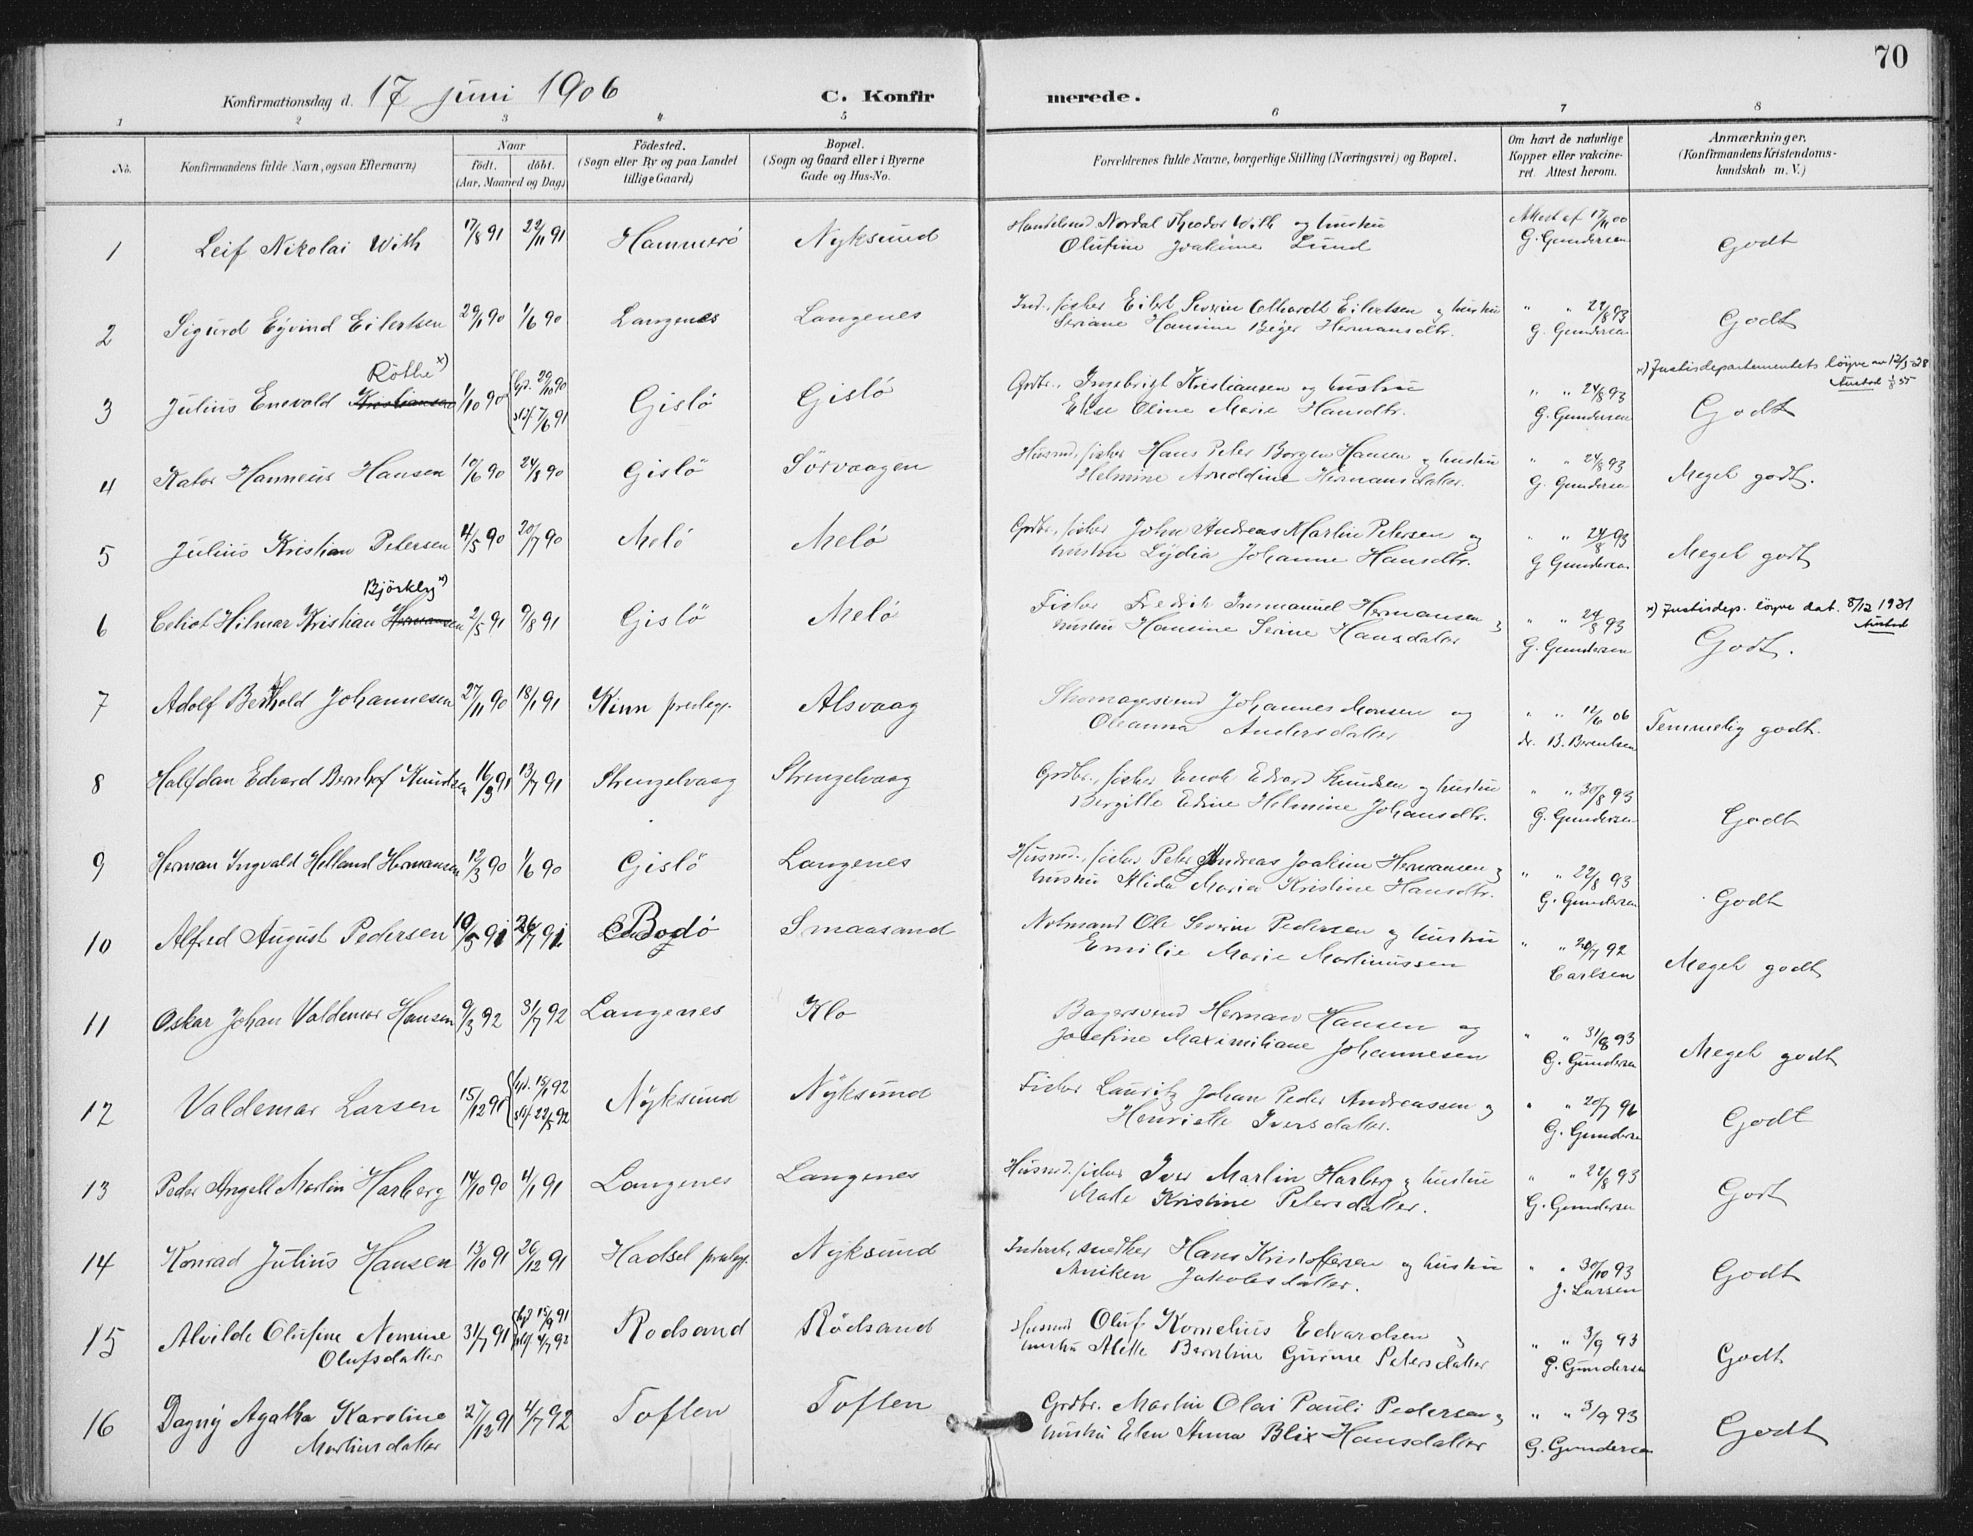 70
Konfirmationsdag d. 17 juni 1906
C. Konfirmerede.
1 2 3 4 5 6 7 8
No.
Konfirmandens fulde Navn, ogsaa Efternavn)
Naar
födt. döbt.
(Aar, Maaned og Dag)
Födested.
(Sogn eller By og paa Landet
tillige Gaard)
Bopæl.
(Sogn og Gaard eller i Byerne
Gade og Hus-No.
Forældrenes fulde Navne, borgerlige Stilling (Næringsvei) og Bopæl.
Om havt de naturlige
Kopper eller vakcine-
ret. Attest herom.
Anmærkninger.
(Konfirmandens Kristendoms-
kundskab m. V.)
1 Leif Nikolai With 17/8 91 22/11 91 Hammerö Nyksund
Handelsmd Nordal Theodor With og hustru
Olufine Joakime Lund
Attest af 17/11 00
G. Gundersen
Godt
2 Sigurd Eyvind Eilertsen 29/1 90 1/6 90 Langenes Langenes
Ind., fisker Eilert Severin Eilertsen og hustru
Seriane Hansine Hermansdtr.
" " 22/8 93
G. Gundersen
Godt
Röthe x)
3 Julius Enevald Kristiansen 1/10 90 hjd. 29/10 90 Gislö Gislö
stf 7/6 91
Grdbr., Ingebrigt Kristiansen og hustru
Else Oline Marie Hansdtr.
" " 24/8 93
G. Gundersen
x) Justisdepartementets löyve av 12/3-28
Austad
Godt
4 Kator Hanneus Hansen 10/6 90 24/8 90 Gislö Sörvaagen
Husmd, fisker Hans Peter Borgen Hansen og hustru
Helmine Arnoldine Hermansdatter.
" " 24/8 93
G. Gundersen
Meget godt.
5 Julius Kristian Petersen 4/5 90 20/7 90 Melö Melö
Grdbr., fisker John Andreas Martin Petersen og
hustru Lydia Johanne Hansdtr.
" " 24/8 93
G Gundersen
Meget godt
Björkly x)
6 Celiot Hilmar Kristian Hermansen 2/5 91 9/8 91 Gislö Melö
Fisker Fredrik Immanuel Hermansen og
hustru Hansine Serine Hansdatter
" " 24/8 93
G. Gundersen
x) Justisdep. löyve dat. 8/12 1921
Austad
Godt.
7 Adolf Berthold Johannesen 27/11 90 18/1 91 Kinn prestegj. Alsvaag
Skomagersvend Johannes Monsen og
Oleanna Andersdatter
" " 12/6 06
dr. B. Berentsen
Temmelig godt.
8 Halfdan Edvard Bernhof Knudsen 16/3 91 13/7 91 Strengelvaag Strengelvaag
Grdbr., fisker Enok Edvard Knudsen og hustru
Bergitte Edine Helmine Johansdtr.
" " 30/8 93
G. Gundersen
Godt
9 Herman Ingvald Helland Hermansen 12/3 90 1/6 90 Gislö Langenes
Husmd., fisker Peter Andreas Joakim Hermansen og
hustru Alida Maria Kristine Hansdtr.
" " 22/8 93
G. Gundersen
Godt
10 Alfred August Pedersen 10/5 91 26/7 91 Bodö Smaasand
Notmand Ole Severin Pedersen og hustru
Emilie Marie Martinussen
" " 20/7 92
Carlsen
Meget godt
11 Oskar Johan Valdemar Hansen 9/3 92 31/7 92 Langenes Klo
Bagersvend Herman Hansen og
Josefine Maximiliane Johannesen
" " 31/8 93
G. Gundersen
Meget godt
12 Valdemar Larsen 15/12 91 hjd. 15/1 92 Nyksund Nyksund
stf 22/5 92
Fisker Lauritz Johan Peder Andreassen og
Henriette Iversdatter.
" " 20/7 96
G. Gundersen
Godt
13 Peder Angell Martin Harberg 14/10 90 4/1 91 Langenes Langenes
Husmd. fisker Iver Martin Harberg og hustru
Marte Kristine Petersdatter.
" " 22/8 93
G. Gundersen
Godt
14 Konrad Julius Hansen 13/10 91 26/12 91 Hadsel prestegj. Nyksund
Inderst, snedker Hans Kristoffersen og hustru
Anniken Jakobsdatter.
" " 30/10 93
J. Larsen
Godt
15 Alvilde Olufine Nemine 31/7 91 hjd 15/9 91 Rodsand Rödsand
Olufsdatter stf 4/7 92
Husmd Oluf Kornelius Edvardsen og
hustru Alette Berntine Gurine Petersdatter
" " 3/9 93
G. Gundersen
Godt
16 Dagny Agatha Karoline 27/12 91 4/7 92 Toften Toften
Martinsdatter
Grdbr. Martin Olai Pauli Pedersen og
hustru Elen Anna Blix Hansdatter
" " 3/9 93
G. Gundersen
Godt